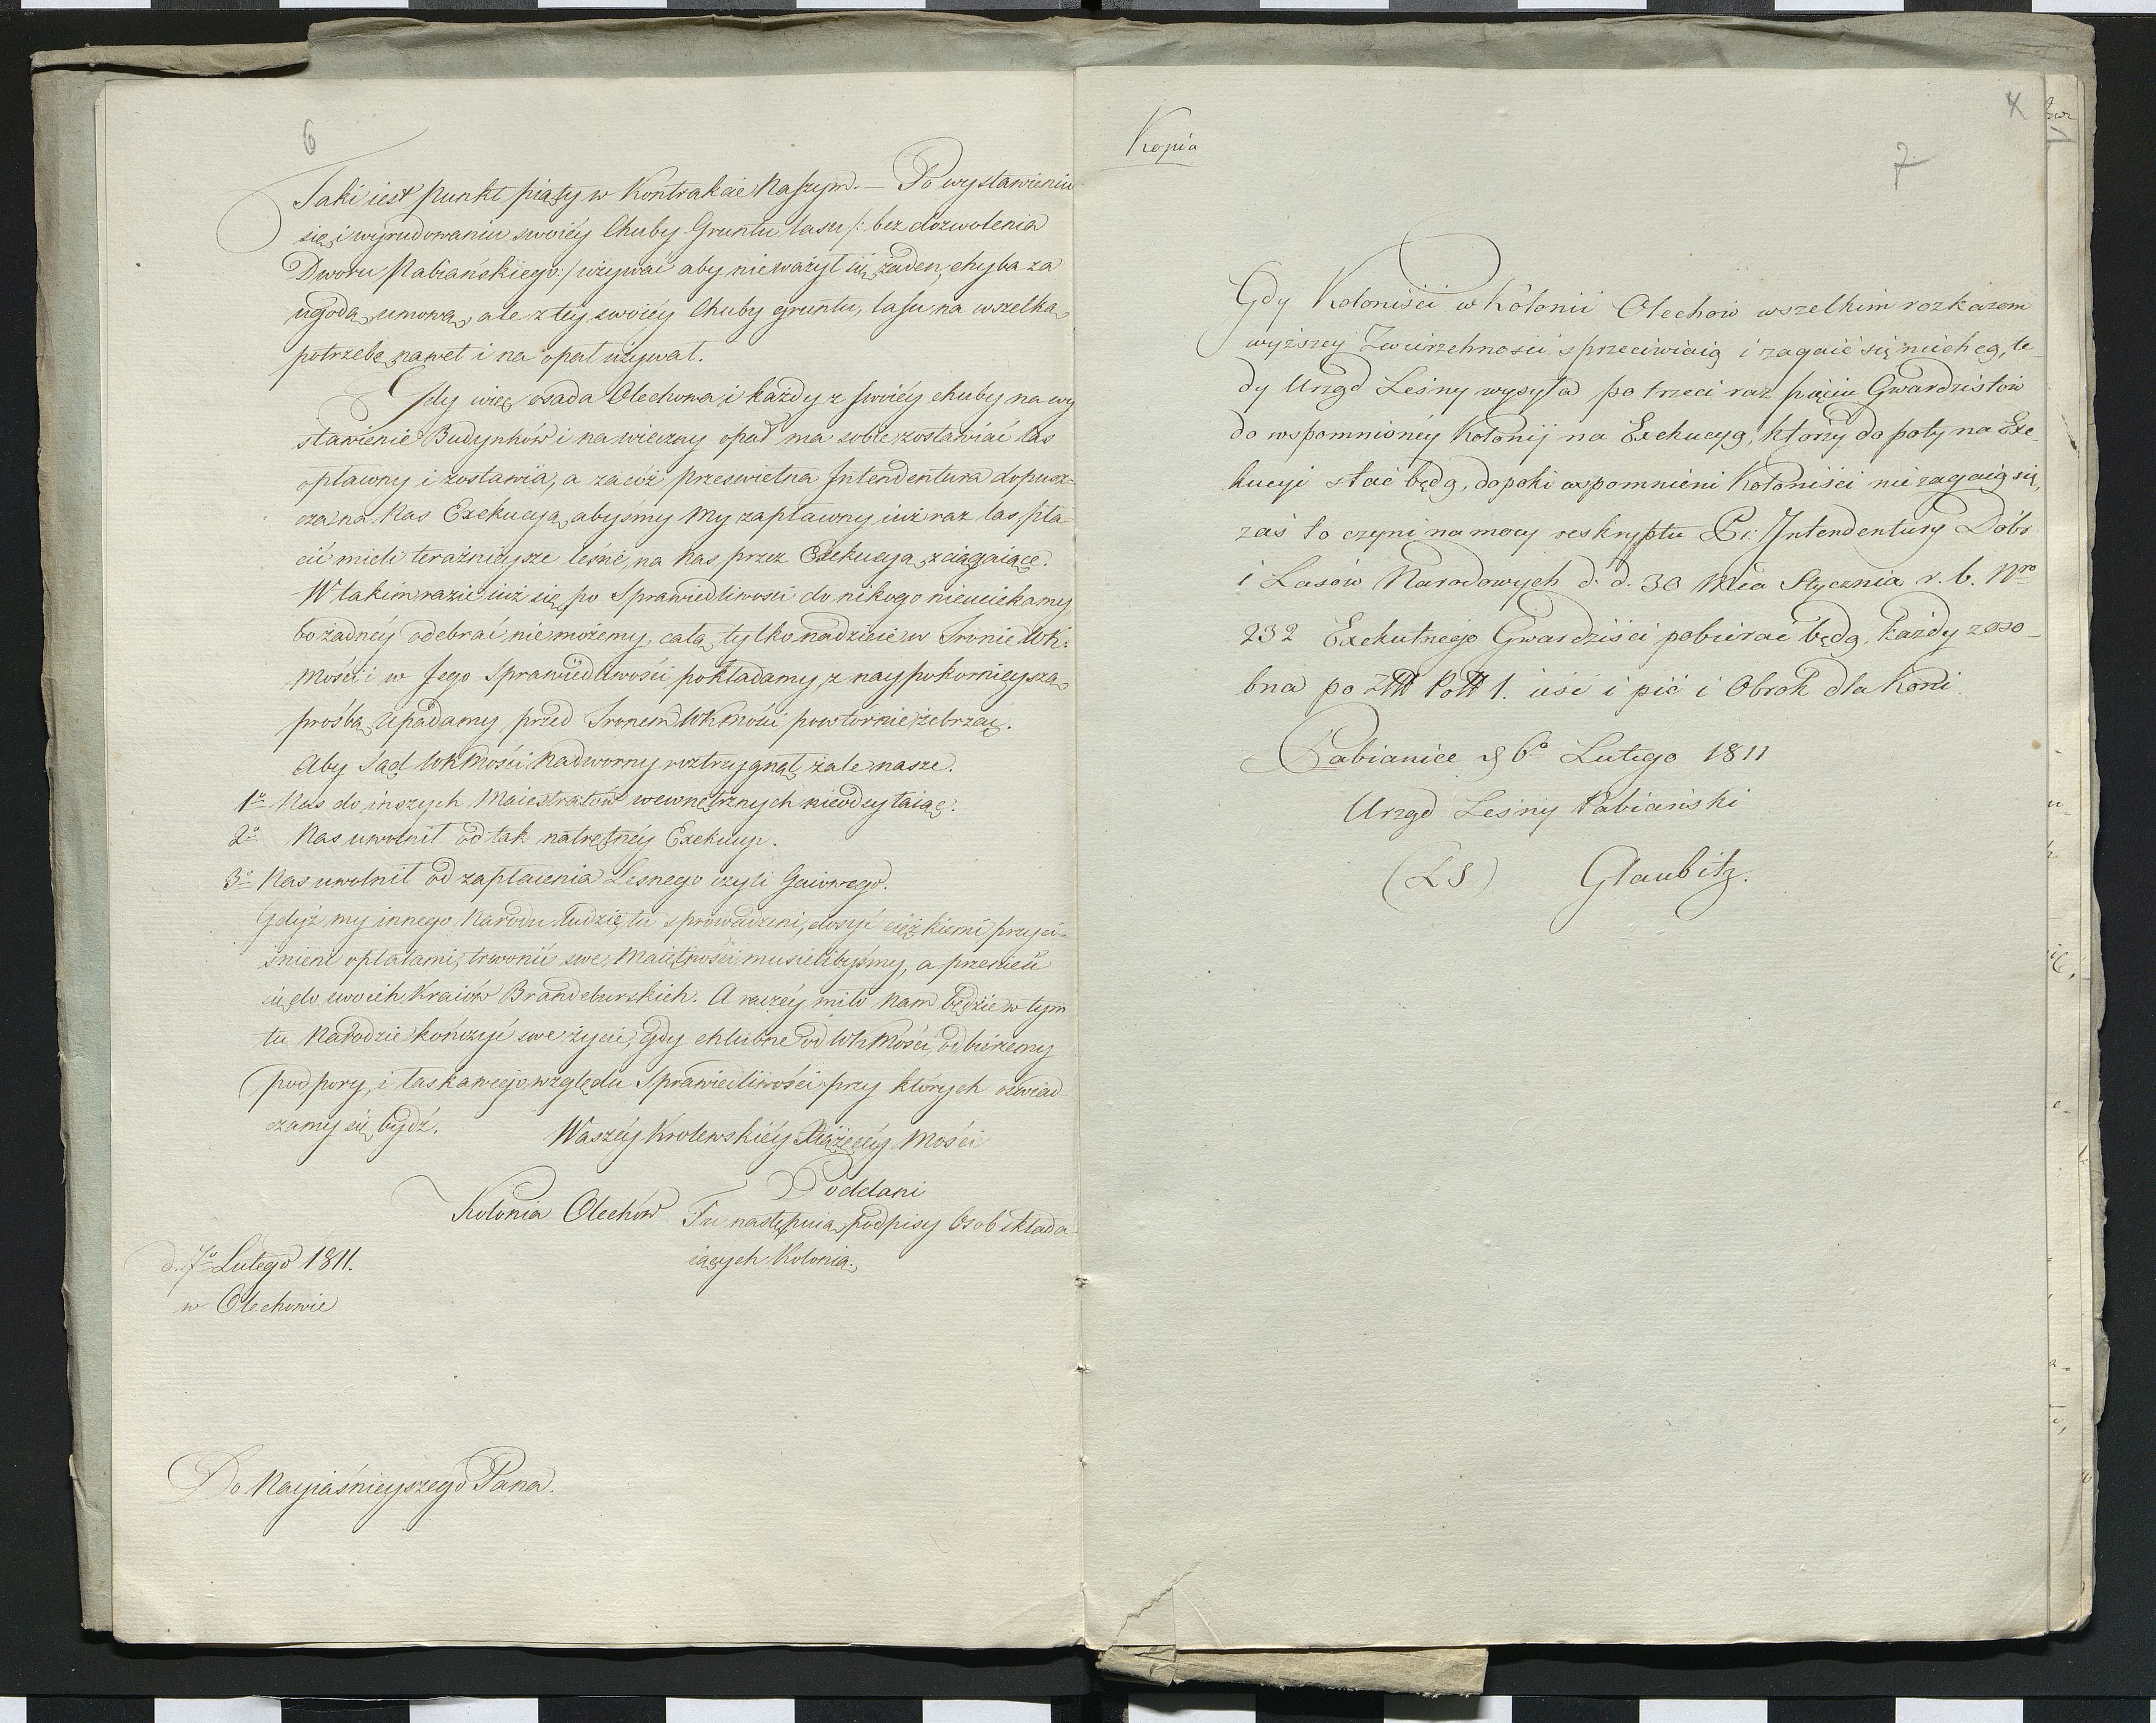 6
Taki iest Punkt piąty w Kontrakcie Naszym. — Po wystawieniu
się i wyrudowaniu swoićy Chuby Gruntu lasu /: bez dozwolenia
Dworu Pabiańskiego:/ używać aby nieważył się żaden, chyba za
ugodą, umową, ale z tey swoićy Chuby gruntu, lasu na wszelką
potrzebę nawet i na opał używał.
Gdy więc osada Olechowa i każdy z swoićy chuby na wy
stawienie Budynków i na wieczny opał ma sobie zostawiać las
opławny i zostawia, a zacóż przeswietna Intendentura dopusz-
cza na Nas Exekucyą, abyśmy My zapławny iuż raz las, pła-
cić mieli teraźnieysze leśne, na Nas przez Exekucyą zciągaiące.
W takim razie iuż się po Sprawiedliwosci do nikogo nieuciekamy
bo żadnéy odebrać niemożemy, całą tylko nadzieie w Tronie WK.
Mości i w Jego Sprawiedliwości pokładamy, z naypokornieyszą
prośbą Upadamy przed Tronem WKMości powtórnie żebrząc.
Aby Sąd WKMości Nadworny roztrzygnął żale nasze.
1º Nas do inszych Maiestratów wewnętrznych nieodsyłaiąc.
2º Nas uwolnił od tak natrętnéy Exekucyi.
3º Nas uwolnił od zapłacenia Lesnego czyli Gaiowego.
Gdyż my innego Narodu Ludzie, tu sprowadzeni, dosyć ciężkiemi przyci-
śnieni opłatami, trwonić swe Maiętności musielibyśmy, a przenieść
się do swoich Kraiów Brandeburskich. A raczéy miło Nam będzie w tym
tu Narodzie kończyć swe życie, gdy chlubne od WKMości, odbierzemy
podpory, i łaskawego względu Sprawiedliwości przy których oświad-
czamy się bydź.
Waszéy Krolewskiéy Xiążęcéy Mości
Poddani
Kolonia Olechów Tu następuią podpisy Osob składa-
iących Kolonią.
d. 7º Lutego 1811.
w Olechowie
Do Nayiaśnieyszego Pana.
Kopia
4
7
Gdy Koloniści w Kolonii Olechow wszelkim rozkazom
wyższey Zwierzchnosci sprzeciwiaią i zagaić się niechcą, te-
dy Urząd Leśny wysyła po trzeci raz pięciu Gwardzistow
do wspomnionéy Kolonij na Exekucyą, ktorzy do poty na Exe-
kucyi stać będą, dopoki wspomnieni Koloniści nie zagaią się,
zaś to czyni na mocy reskryptu Pr: Intendentury Dóbr
i Lasów Narodowych d. d. 30 Mca Stycznia r. b. Nro
232 Exekutnego Gwardziści pobierać będą, każdy zoso-
bna po Złł Poll 1. ieść i pić i Obrok dla Koni.
Pabianice d 6º Lutego 1811
Urząd Leśny Pabiański
(LS) Glaubitz.